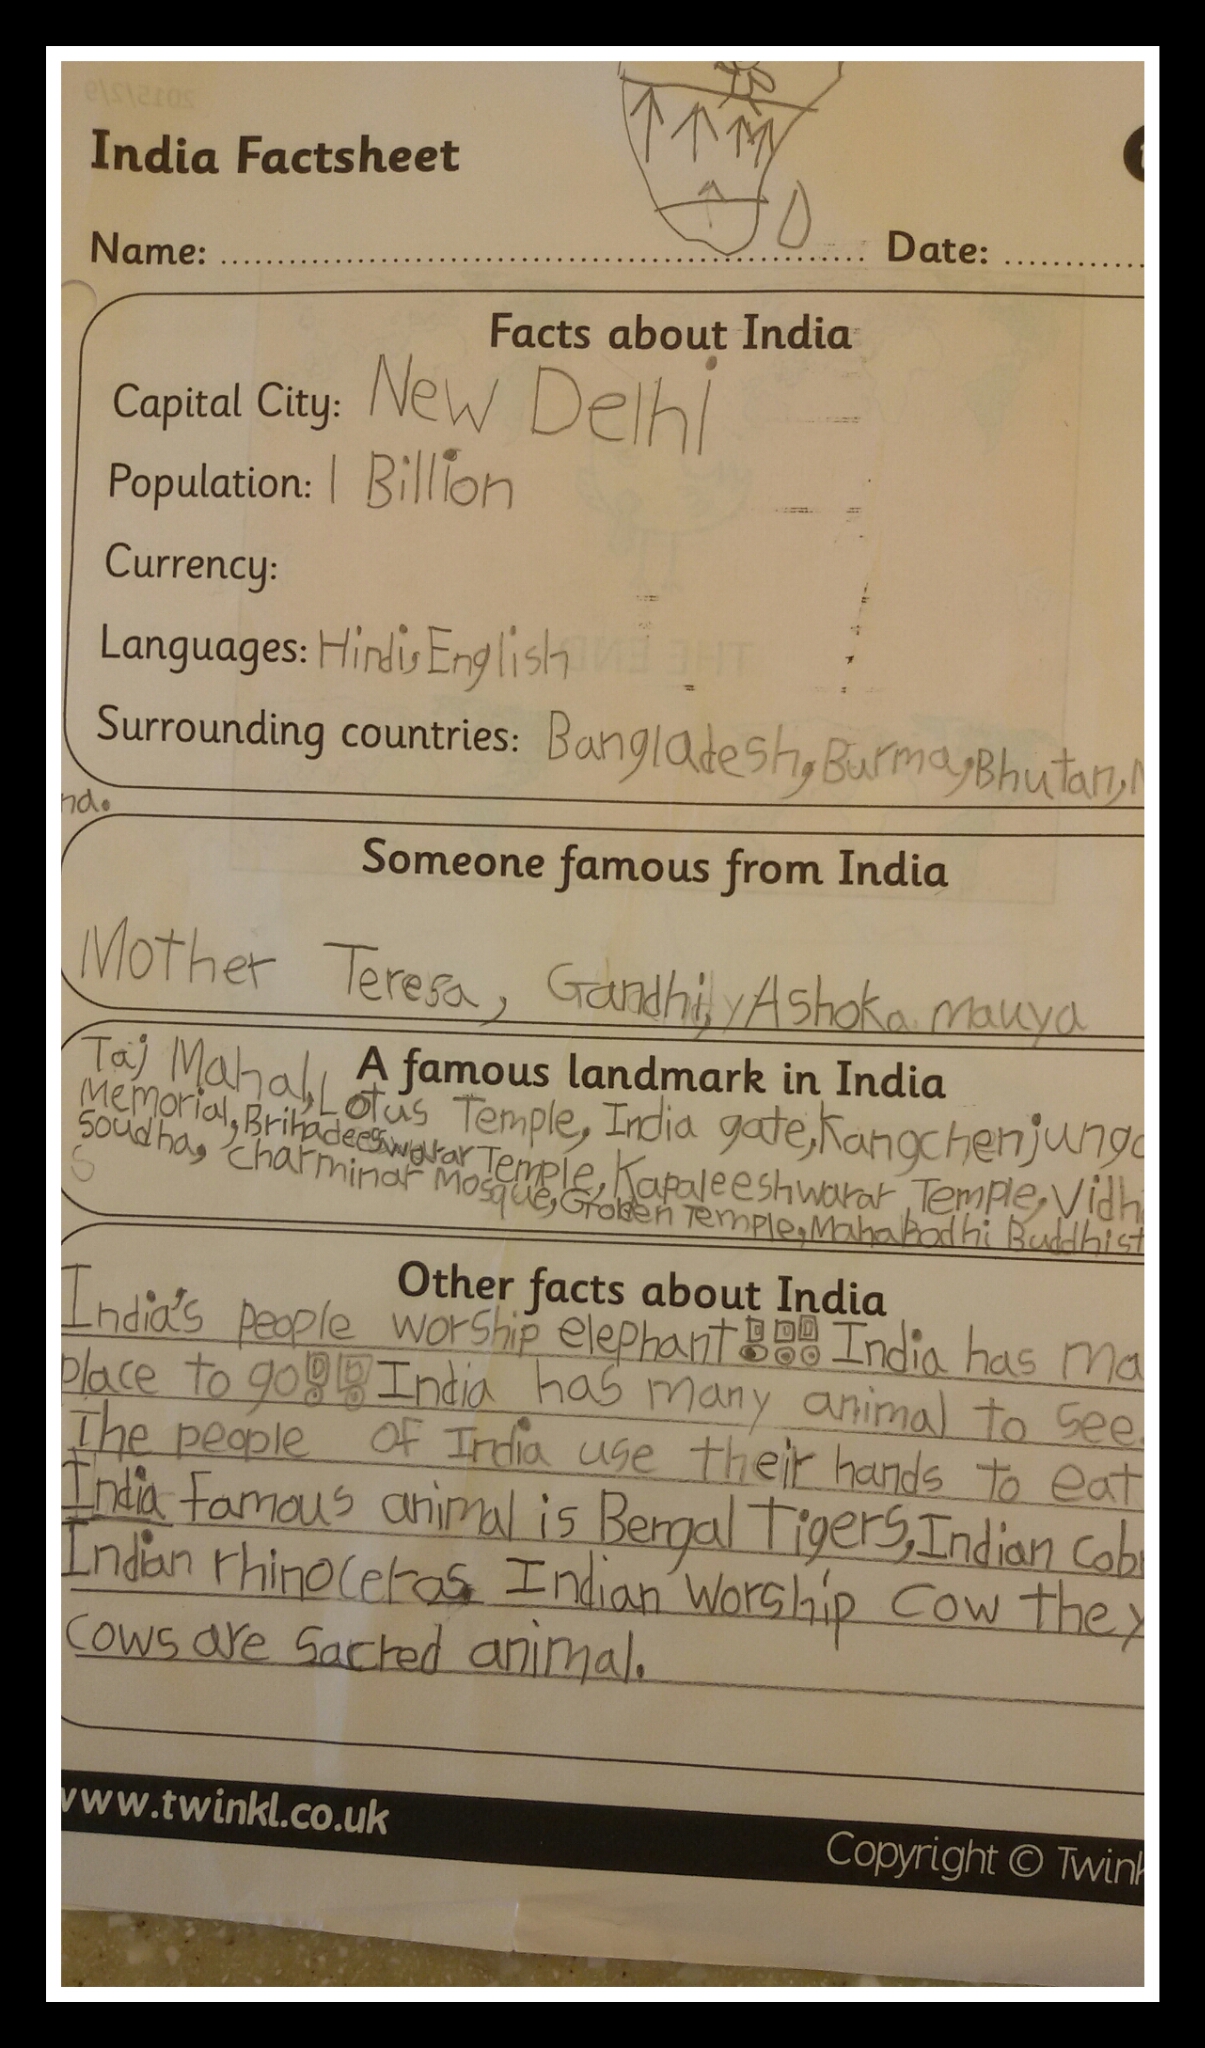 2015/2/9
India Factsheet
Name: Date:
Facts about India
Capital City: New Delhi
Population: 1 Billion
Currency:
Languages: Hindi, English
THE END
Surrounding countries: Bangladesh, Burma, Bhutan, N
nd.
Someone famous from India
Mother Teresa, Gandhi, Ashoka mauya
A famous landmark in India
Taj Mahal, Lotus Temple, India gate, Kangchenjung
Memorial, Brihadeeswarar Temple, Kapaleeshwarar Temple, Vidh
Soudha, Charminar Mosque, Golden Temple, Mahabodhi Buddhist
Other facts about India
India's people worship elephant India has ma
place to go India has many animal to see.
The people of India use their hands to eat
India famous animal is Bengal Tigers, Indian Cob
Indian rhinoceras Indian worship cow they
cows are sacred animal.
www.twinkl.co.uk
Copyright © Twink